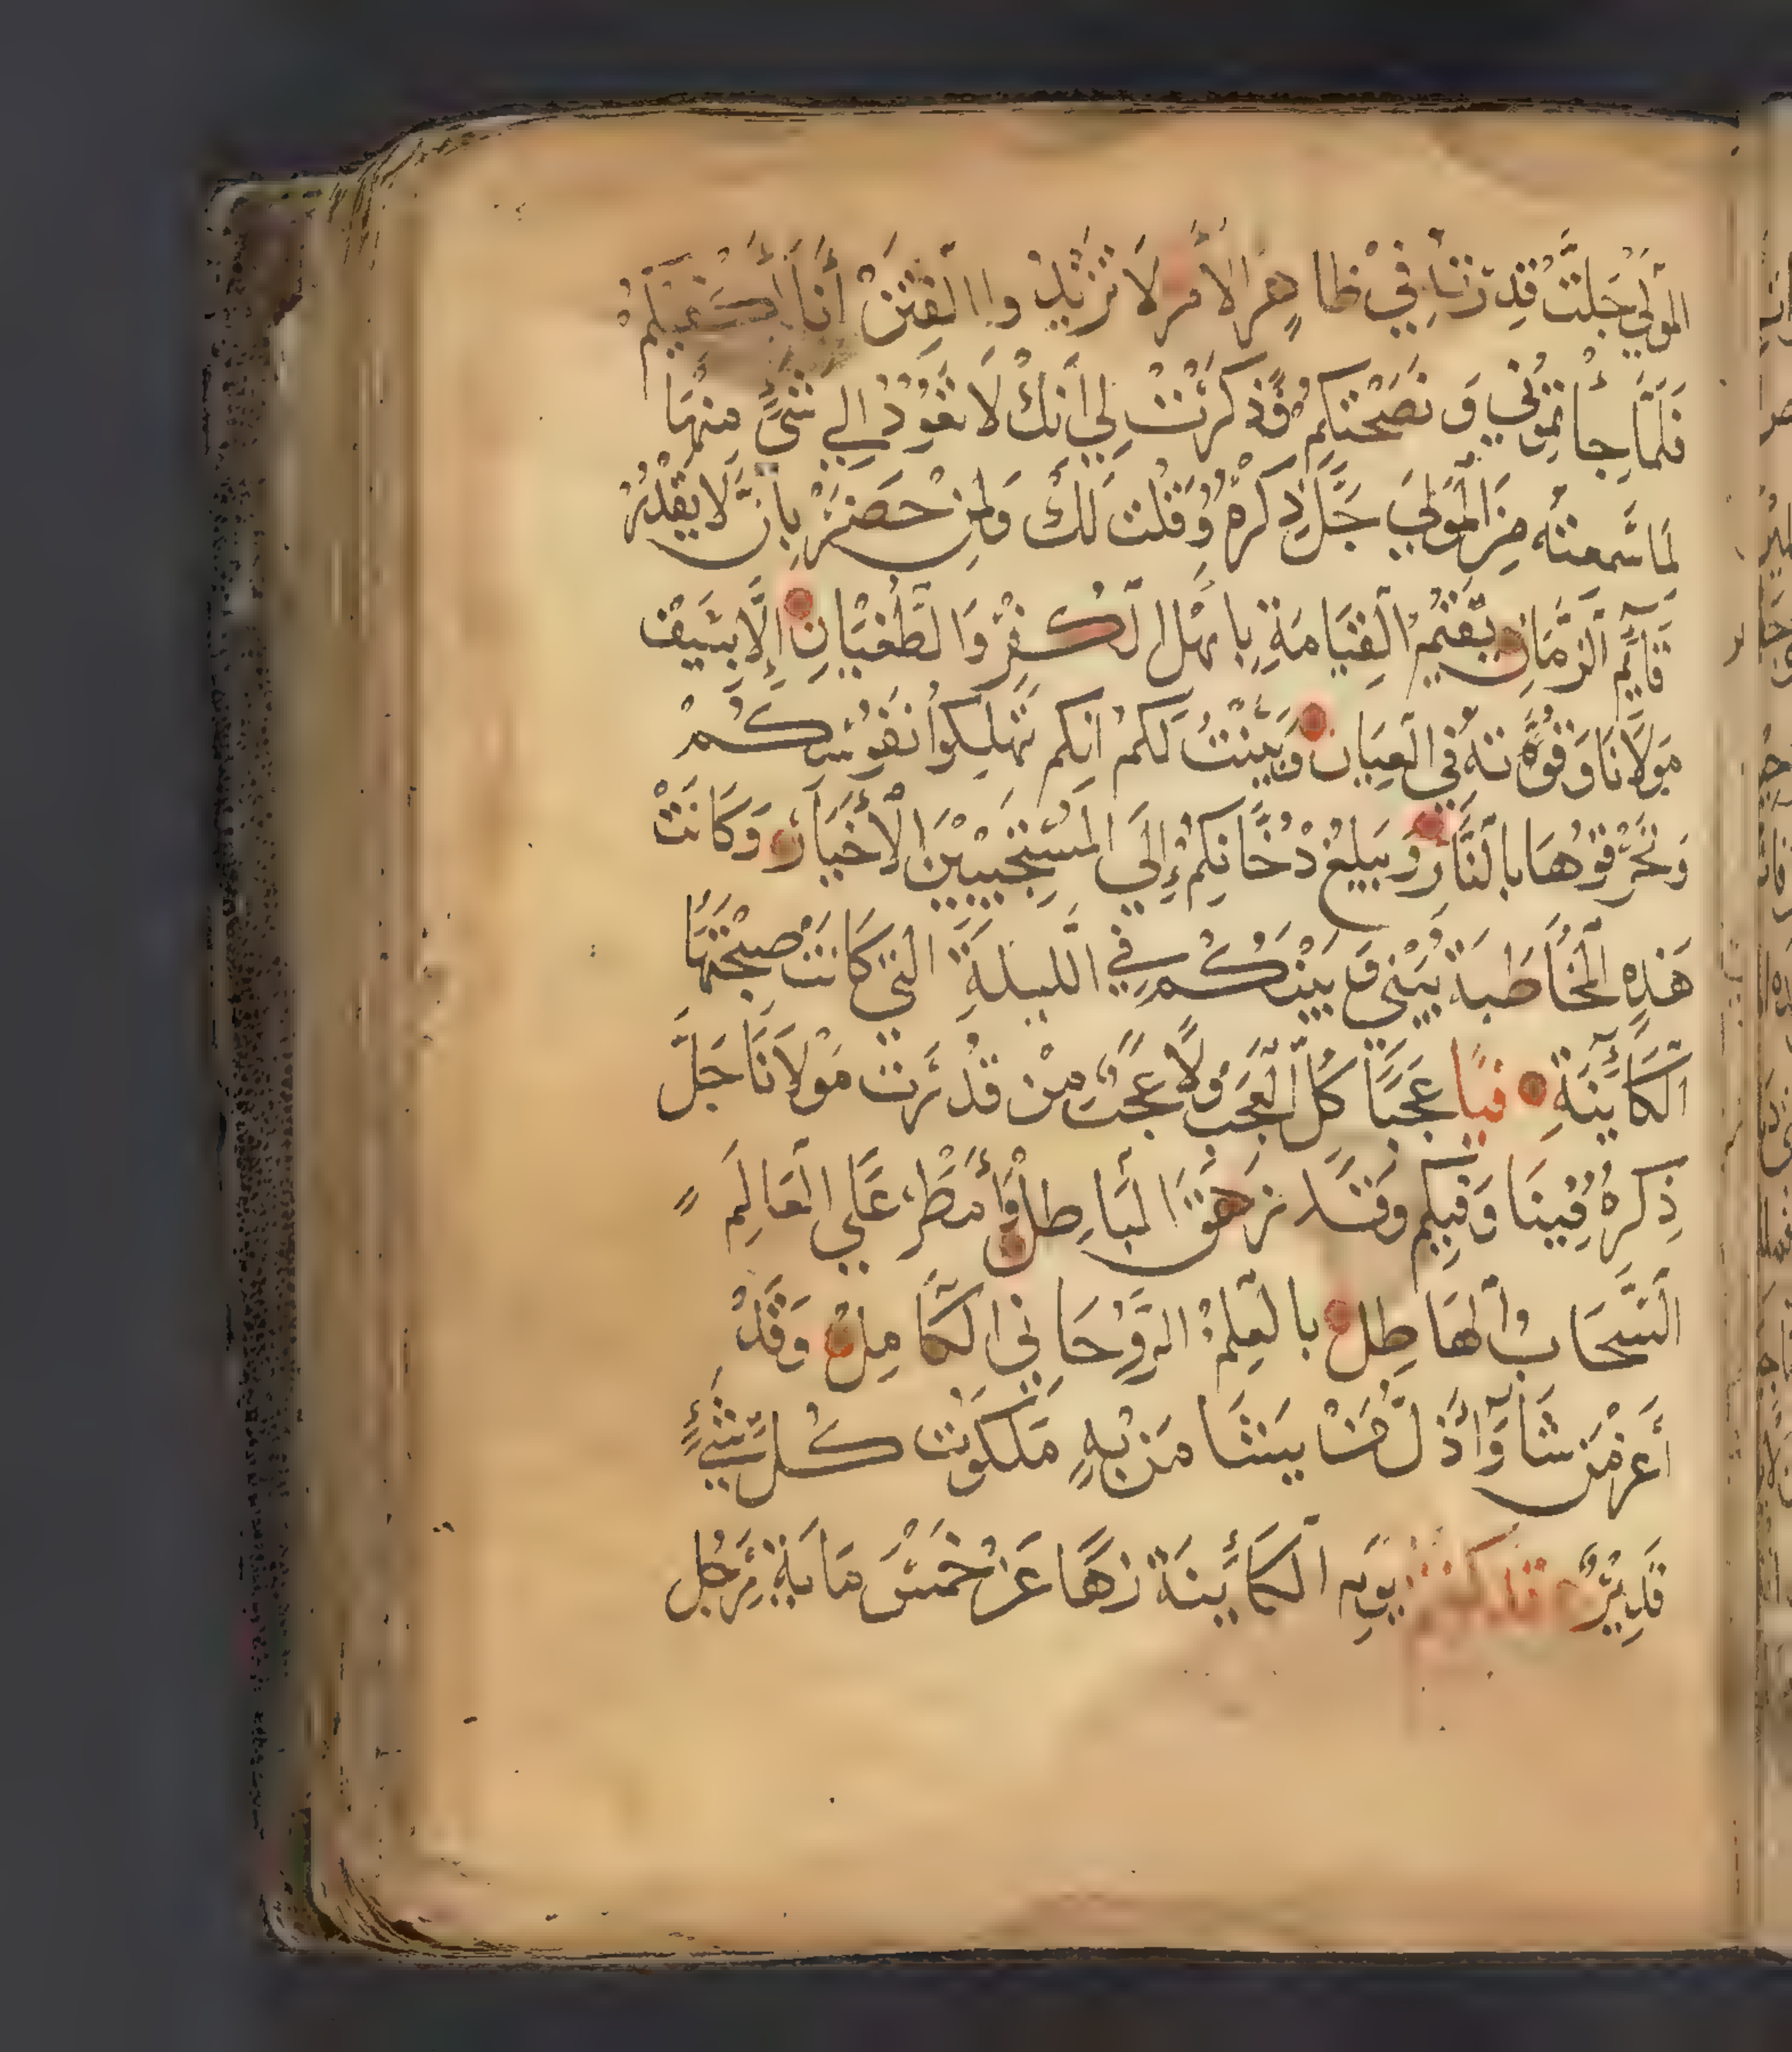 المولي جلت قدرته في ظاهر الامر لا تزيدوا الفتن أنا أكفيكم
فلما جأتموني و نصحتكم وذكرت لي انك لا تعود الي شيء منها
لما سمعته من المولي جل ذكره وقلت لك ولمن حضر بأن لا يقدر
قآيم الزمان يقيم القيامة باهل الكفر والطغيان إلا بسيف
مولانا وقوته في العيان وبينت لكم انكم تهلكوا نفوسكم
وتحرقوها بالنار ويبلغ دخانكم إلى المستجيبين الأخيار وكانت
هذه المخاطبة بيني و بينكم في الليلة التي كانت صبحتها
الكأينة فيا عجبا كل العجب ولا عجب من قدرت مولانا جل
ذكره فينا وفيكم وقد زهق الباطل وأمطر علي العالم
السحاب الهاطل بالعلم الروحاني الكامل وقد
أعز من شآ وأذل من يشا من به ملكوت كل شيء
قدير فلكنتم يوم الكأينة زها عن خمس ماية رجل